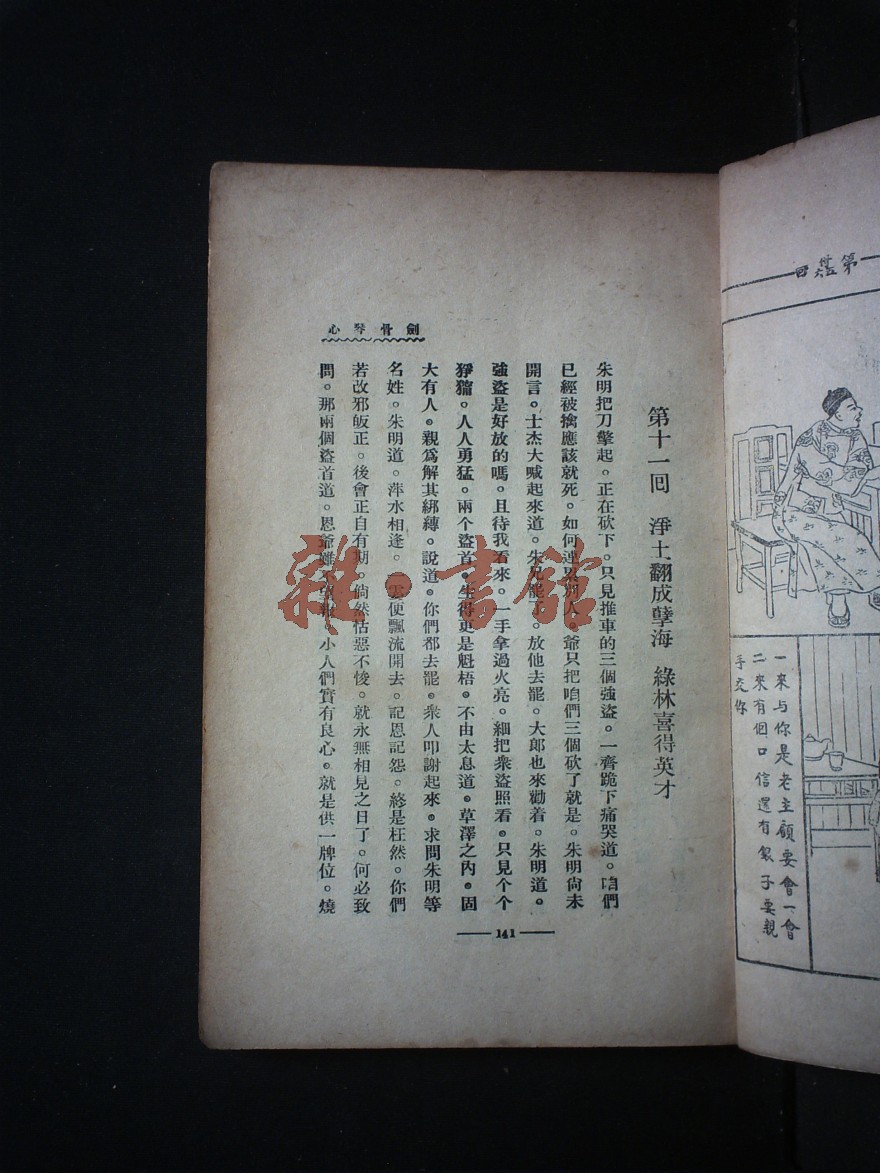 第
回
一來与你是老主顧要會一會
二來有個口信還有銀子要親
手交你
劍骨琴心
第十一回 淨土翻成孽海 綠林喜得英才
朱明把刀擎起。正在砍下。只見推車的三個強盜。一齊跪下痛哭道。咱們
已經被擒應該就死。如何連累別人。爺只把咱們三個砍了就是。朱明尙未
開言。士杰大喊起來道。朱兄罷了。放他去罷。大郎也來勸着。朱明道。
強盜是好放的嗎。且待我看來。一手拿過火亮。細把衆盜照看。只見个个
猙獰。人人勇猛。兩个盜首。生得更是魁梧。不由太息道。草澤之內。固
大有人。親爲解其綁縛。說道。你們都去罷。衆人叩謝起來。求問朱明等
名姓。朱明道。萍水相逢。雲便飄流開去。記恩記怨。終是枉然。你們
若改邪皈正。後會正自有期。倘然怙惡不悛。就永無相見之日了。何必致
問。那兩個盜首道。恩爺雖不望報。小人們實有良心。就是供一牌位。燒
141
雜·書館